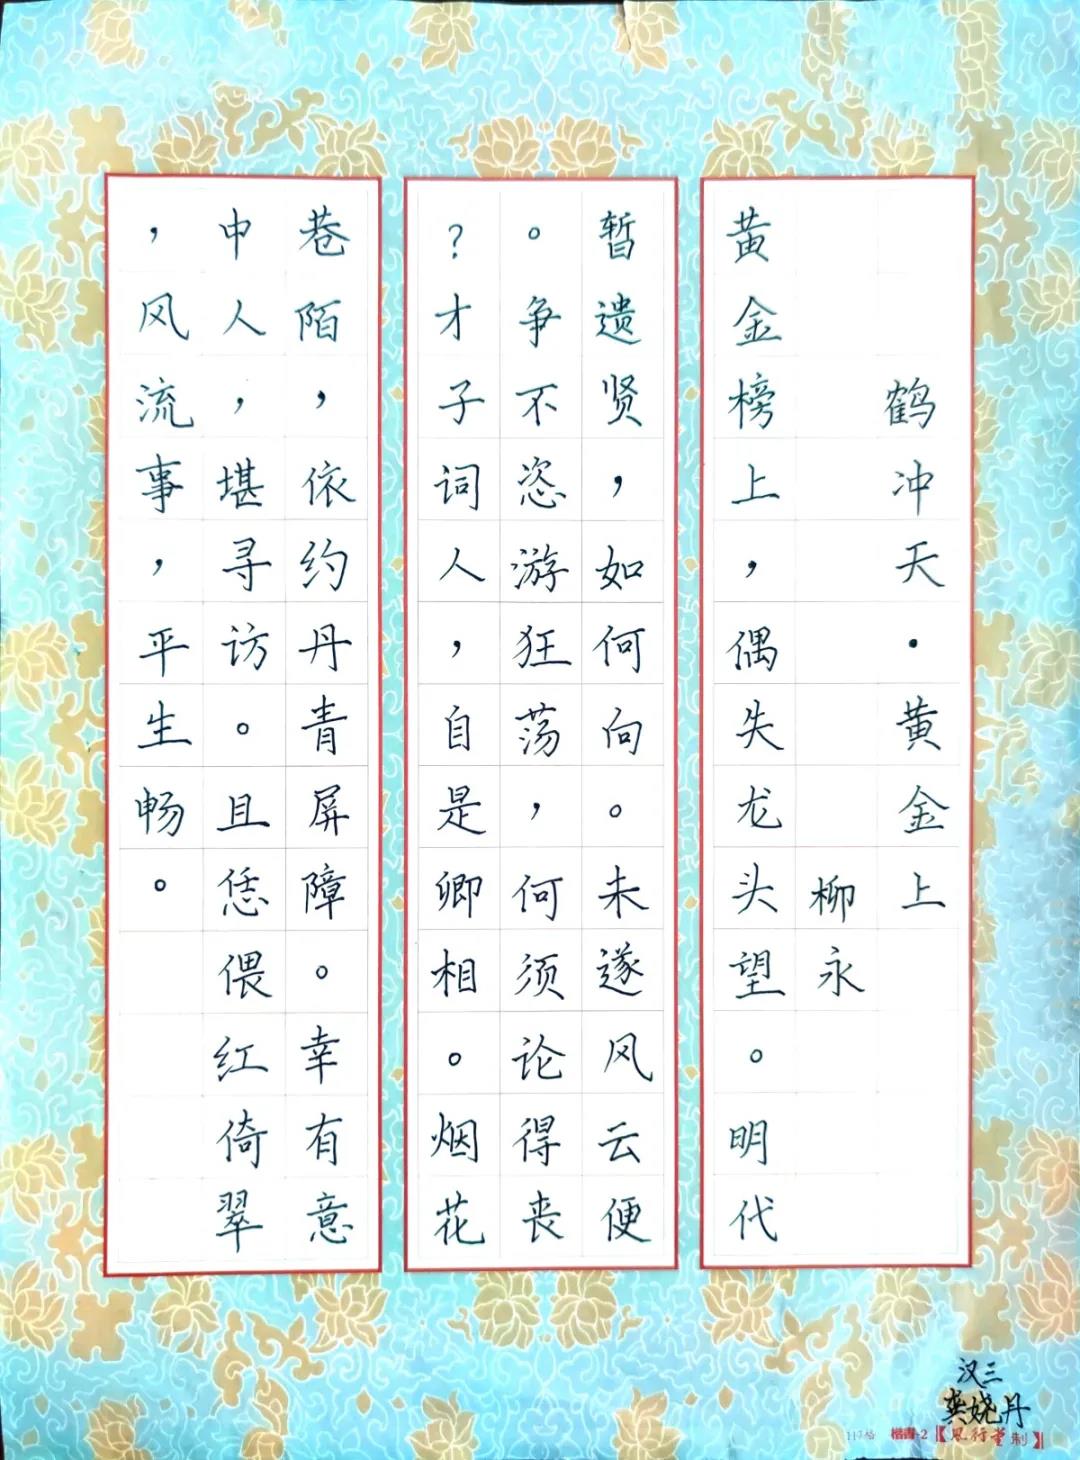 鹤冲天·黄金上
柳永
黄金榜上，偶失龙头望。明代
暂遗贤，如何向。未遂风云便
。争不恣游狂荡，何须论得丧
？才子词人，自是卿相。烟花
巷陌，依约丹青屏障。幸有意
中人，堪寻访。且恁偎红倚翠
，风流事，平生畅。
汉三
龚娆丹
117格 楷書-2【風行堂制】